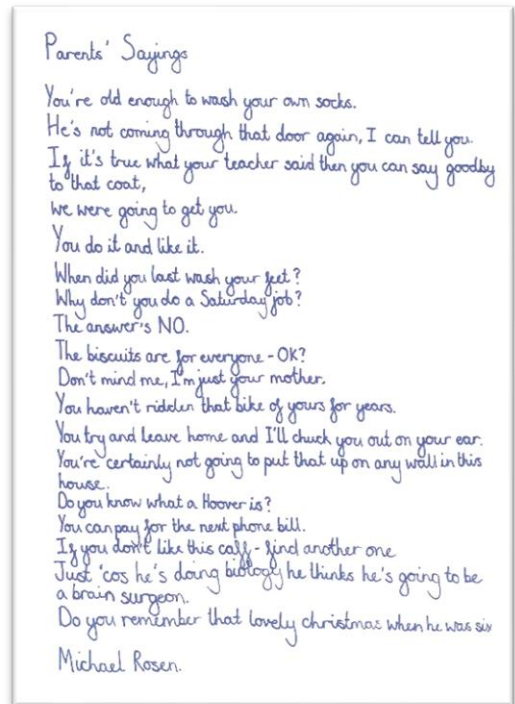 Parents' Sayings
You're old enough to wash your own socks.
He's not coming through that door again, I can tell you.
If it's true what your teacher said then you can say goodby
to that coat,
we were going to get you.
You do it and like it.
When did you last wash your feet?
Why don't you do a Saturday job?
The answer's NO.
The biscuits are for everyone - OK?
Don't mind me, I'm just your mother.
You haven't ridden that bike of yours for years.
You try and leave home and I'll chuck you out on your ear.
You're certainly not going to put that up on any wall in this
house.
Do you know what a Hoover is?
You can pay for the next phone bill.
If you don't like this caff - find another one
Just 'cos he's doing biology he thinks he's going to be
a brain surgeon.
Do you remember that lovely christmas when he was six
Michael Rosen.